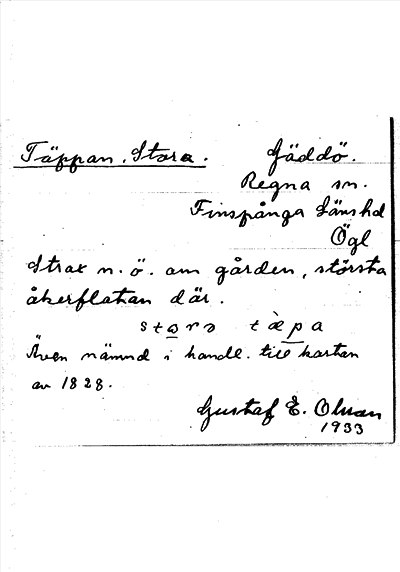 Täppan, Stora. Gäddö.
Regna sn.
Finspånga Länshd
Ögl
Strax n.ö. om gården, största
åkerflatan där.
stọrə tæ̀pa
Även nämnd i handl. till kartan
av 1828.
Gustaf E. Olman
1933